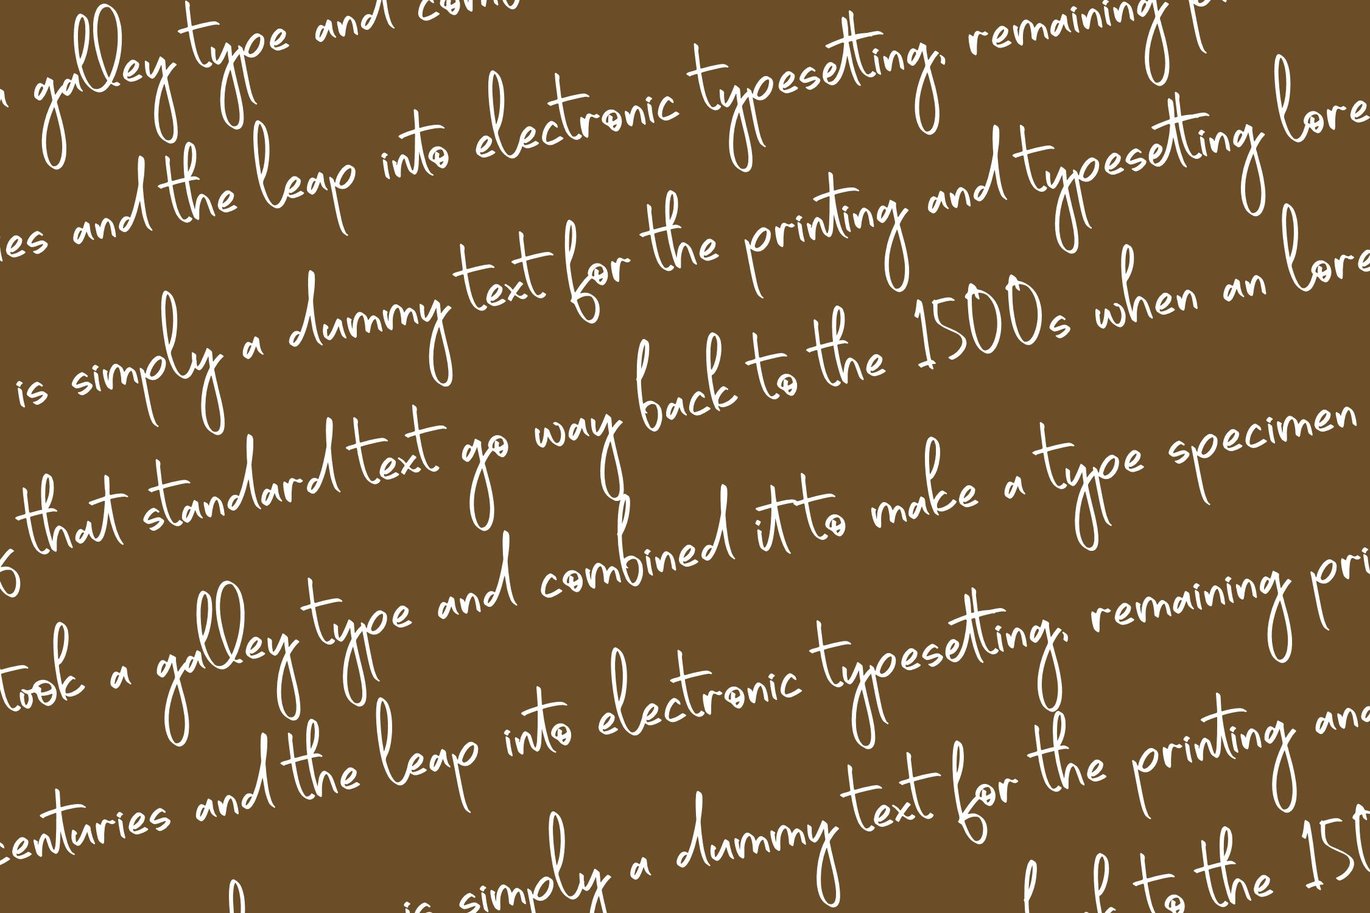 a galley type and comb
ies and the leap into electronic typesetting, remaining pr
is simply a dummy text for the printing and typesetting lore
that standard text go way back to the 1500s when an lore
took a galley type and combined it to make a type specimen
centuries and the leap into electronic typesetting, remaining pri
is simply a dummy text for the printing and
to the 150